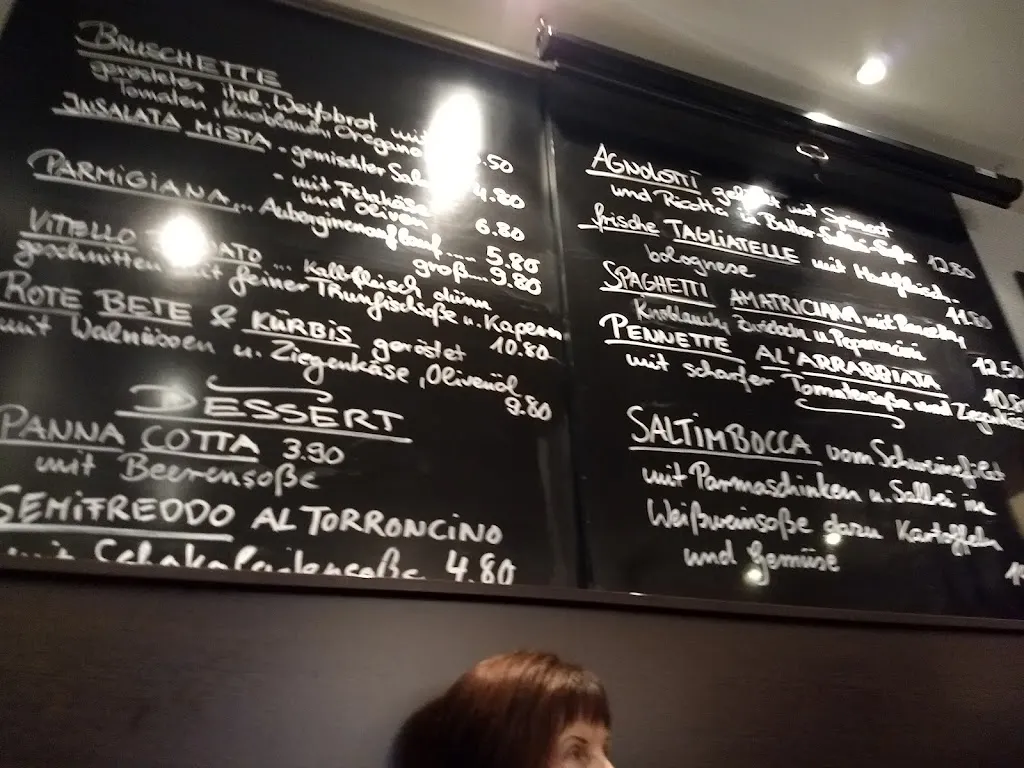 BRUSCHETTE
geröstetes ital. Weißbrot mit
Tomaten, Knoblauch, Oregano .50
INSALATA MISTA - gemischter 4.80
- mit Fetakäse
und Oliven 6.80
PARMIGIANA... Auberginenauflauf.... 5.80
groß... 9.80
VITELLO ... Kalbfleisch dünn
geschnitten mit feiner Thunfischsoße u. Kapern
10.80
ROTE BETE & KÜRBIS geröstet
mit Walnüssen u. Ziegenkäse, Olivenöl
9.80
DESSERT
PANNA COTTA 3.90
mit Beerensoße
SEMIFREDDO AL TORRONCINO
mit Schokoladensoße 4.80
AGNOLOTTI mit Spinat
und Ricotta in Butter-Salbei-Soße 12.80
frische TAGLIATELLE mit Hackfleisch-
bolognese 11.80
SPAGHETTI AMATRICIANA mit Pancetta,
Knoblauch, Zwiebeln u. Peperoncini 12.50
PENNETTE AL'ARRABBIATA 10.8
mit scharfer Tomatensoße und
SALTIMBOCCA vom Schweinefilet
mit Parmaschinken u. Salbei in
Weißweinsoße dazu Kartoffeln
und Gemüse